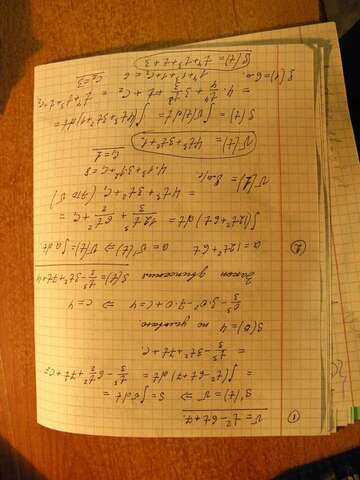 ① v = t² - 6t + 7.
S'(t) = v ⇒ S = ∫ v dt =
= ∫(t² - 6t + 7) dt = t³/3 - 6 t²/2 + 7t + C =
= t³/3 - 3t² + 7t + C.
S(0) = 4 по условию
0³/3 - 3·0² - 7·0 + C = 4 ⇒ C = 4
Закон движения S(t) = t³/3 - 3t² + 7t + 4
② a = 12t² + 6t a = v'(t) ⇒ v(t) = ∫ a dt
∫(12t² + 6t) dt = 12t³/3 + 6t²/2 + C₁ =
= 4t³ + 3t² + C₁ (это v)
v(1) = 8 м/с 4·1³ + 3·1² + C = 8
C₁ = 1
v(t) = 4t³ + 3t² + 1
S(t) = ∫ v(t) dt = ∫(4t³ + 3t² + 1) dt =
= 4·t⁴/4 + 3 t³/3 + t + C₂ = t⁴ + t³ + t + C₂
S(1) = 6 м. 1⁴ + 1³ + 1 + C₂ = 6
C₂ = 3
S(t) = t⁴ + t³ + t + 3